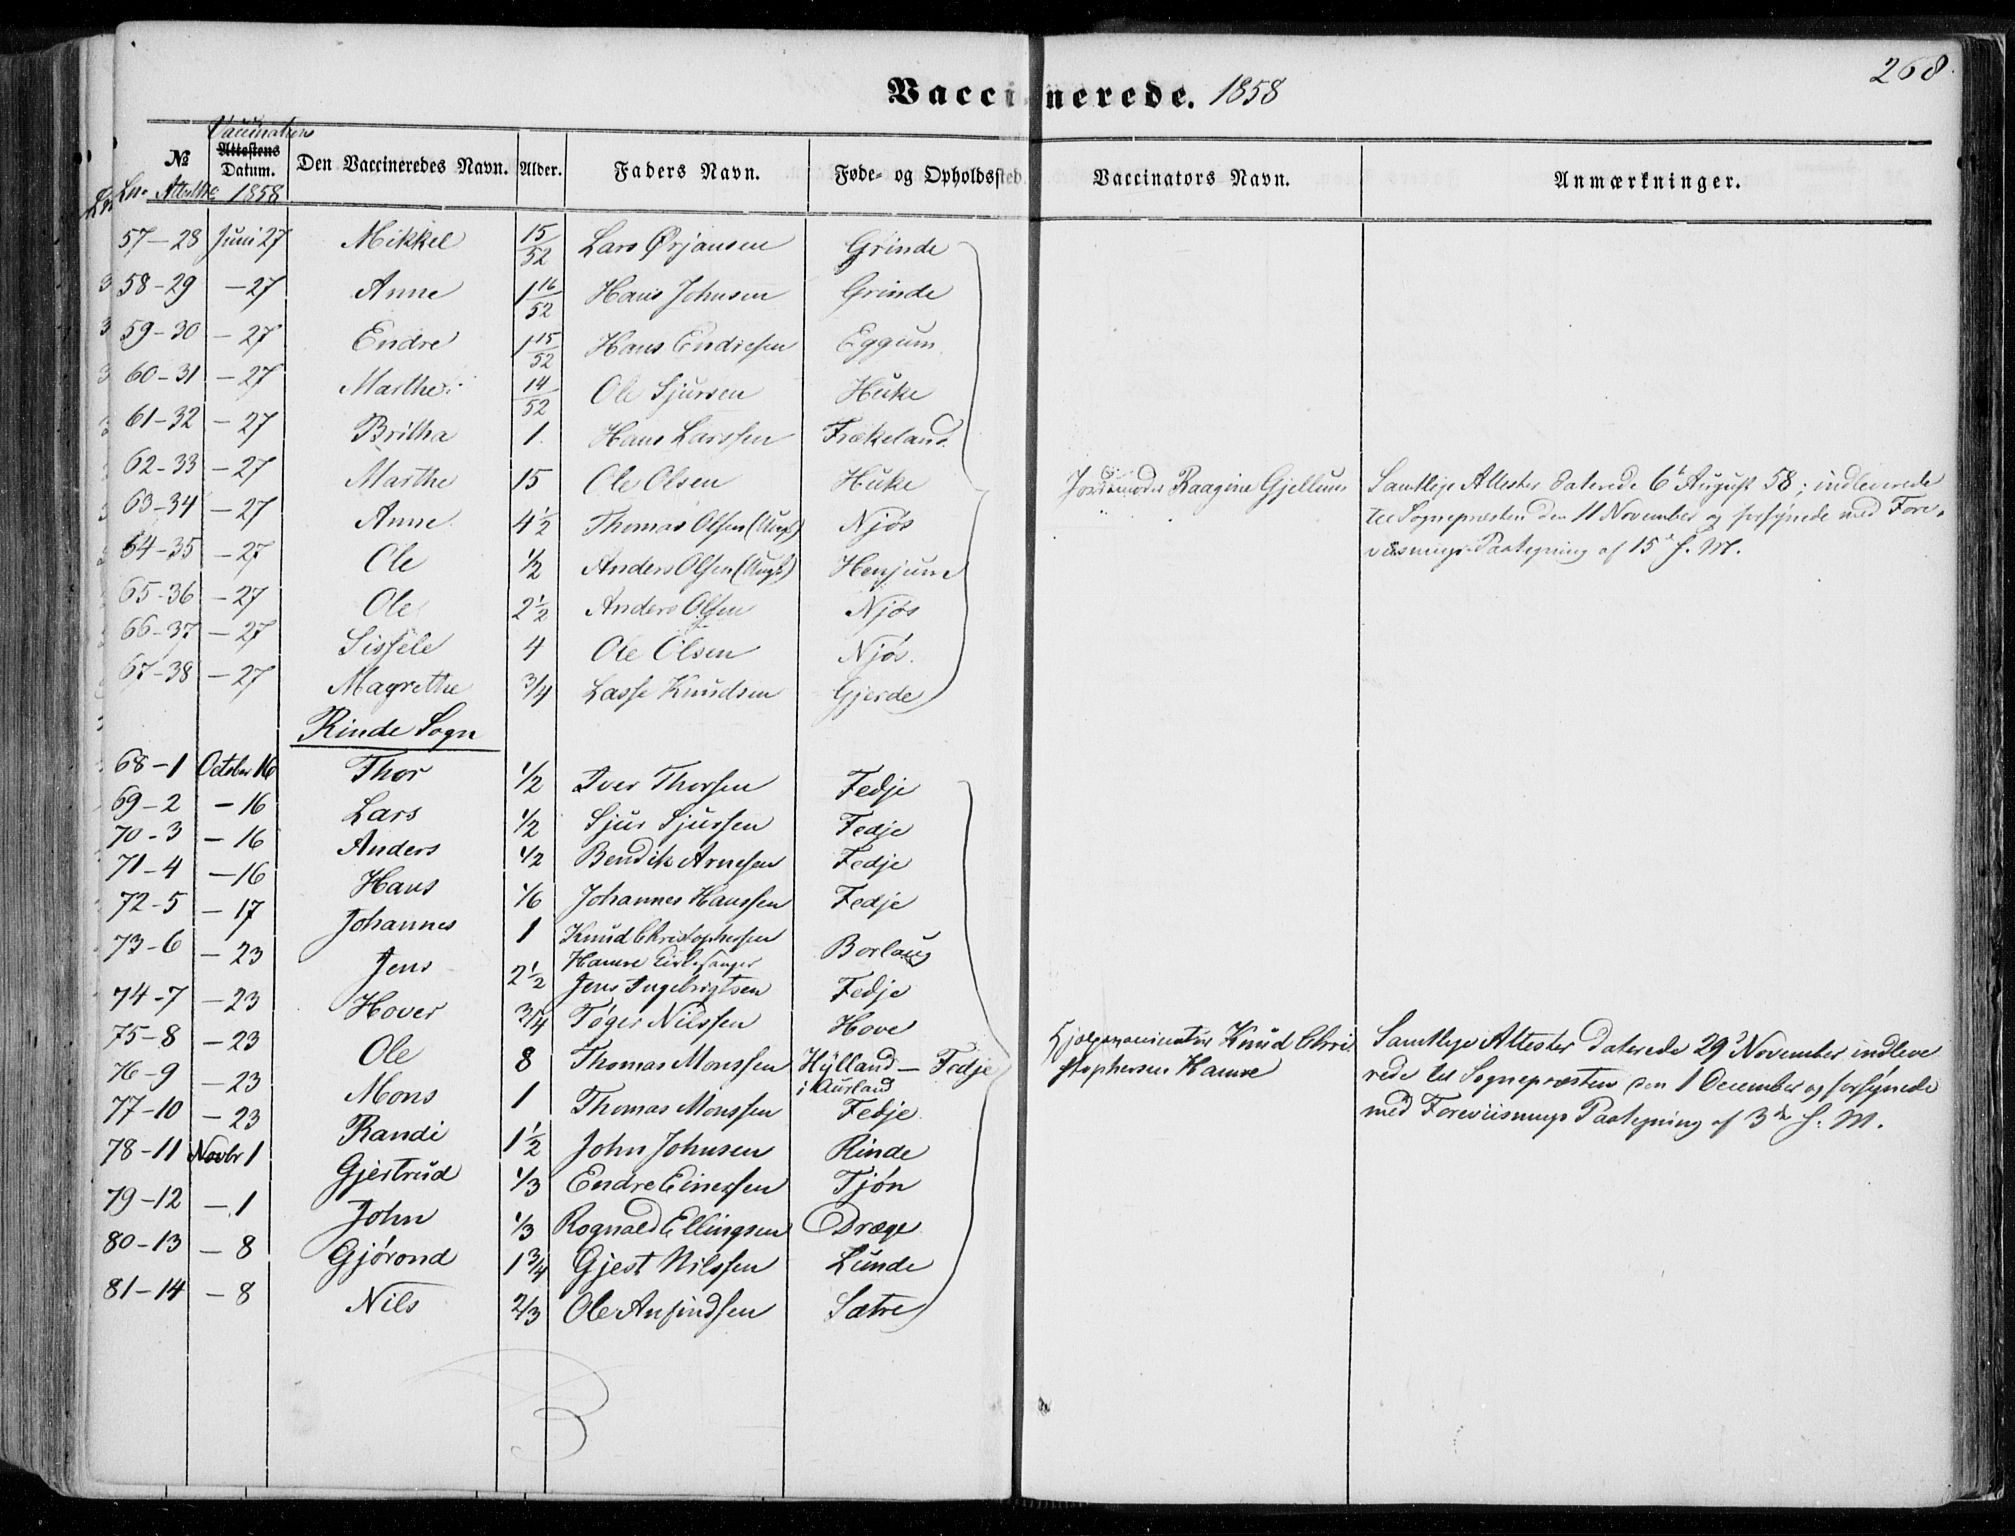 268.
Vaccinerede. 1858
№ Vaccinations Attestens Datum. Den Vaccineredes Navn. Alder. Faders Navn. Føde- og Opholdssted. Vaccinators Navn. Anmærkninger.
Ln. Attestne 1858
57-28 Juni 27 Mikkel 15/52 Lars Ørjansen Grinde
58-29 - 27 Anne 1 16/52 Hans Johnsen Grinde
59-30 - 27 Endre 1 15/52 Hans Endresen Eggum
60-31 - 27 Marthe 14/52 Ole Sjursen Huke
61-32 - 27 Britha 1 Hans Larssen Frækeland
62-33 - 27 Marthe 15 Ole Olsen Huke
63-34 - 27 Anne 4½ Thomas Olsen (Ungk) Njøs
64-35 - 27 Ole ½ Anders Olsen (Ungk) Henjum
65-36 - 27 Ole 2½ Anders Olsen Njøs
66-37 - 27 Sissele 4 Ole Olsen Njøs
67-38 - 27 Magrethe ¾ Lasse Knudsen Gjerde
Jordemoder Raagine Gjellum
Samtlige Attester daterede 6te August 58; indleverede
til Sognepræsten den 11 November og forsynede med Fore-
visnings Paategning af 15de s. M.
Rinde Sogn
68-1 October 16 Thor ½ Iver Thorsen Fedje
69-2 - 16 Lars ½ Sjur Sjurssen Fedje
70-3 - 16 Anders ½ Bendik Arnesen Fedje
71-4 - 16 Hans 1/6 Johannes Hanssen Fedje
72-5 - 17 Johannes 1 Knud Christophersen
Hamre Kirkesanger Borlaug
73-6 - 23 Jens 2½ Jens Ingebrigtsen Fedje
74-7 - 23 Hover ¾ Tøger Nilssen Hove
75-8 - 23 Ole 8 Thomas Monssen Hylland - Fedje
i Aurland
76-9 - 23 Mons 1 Thomas Monssen Fedje
77-10 - 23 Randi 1½ John Johnsen Rinde
78-11 Novbr 1 Gjertrud 1/3 Endre Einersen Tjøn
79-12 - 1 John 1/3 Rognald Ellingsen Dræge
80-13 - 8 Gjørond 1¾ Gjest Nilssen Lunde
81-14 - 8 Nils 2/3 Ole Anfindsen Sætre
Hjelpevaccinatør Knud Chri-
stophersen Hamre
Samtlige Attester daterede 29de November indleve
rede til Sognepræsten den 1 December og forsynede
med Foreviisnings Paategning af 3de s. M.